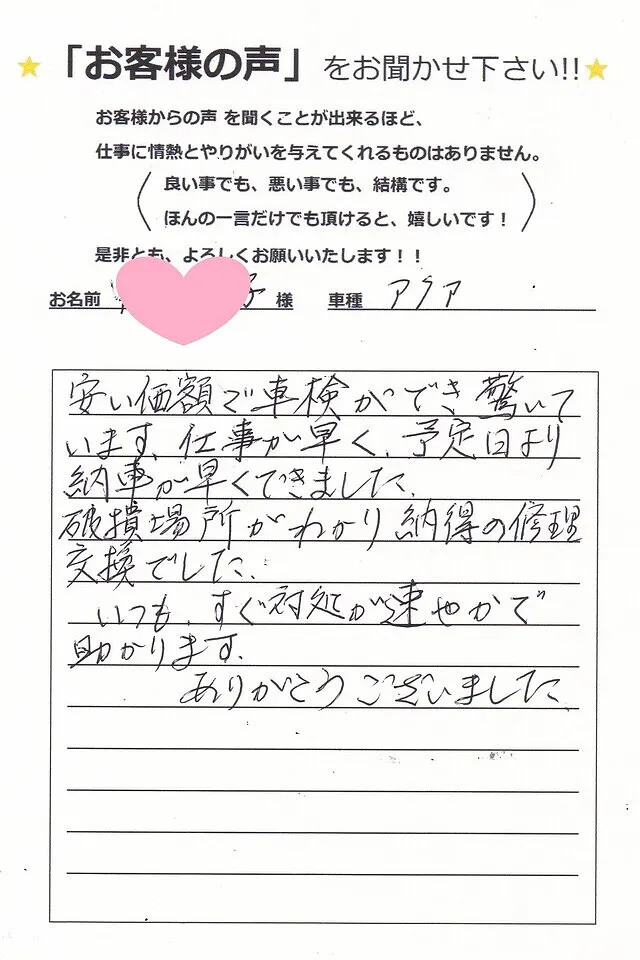 「お客様の声」をお聞かせ下さい!!
お客様からの声 を聞くことが出来るほど、
仕事に情熱とやりがいを与えてくれるものはありません。
良い事でも、悪い事でも、結構です。
ほんの一言だけでも頂けると、嬉しいです！
是非とも、よろしくお願いいたします！！
お名前 子 様 車種 アクア
安い価額で車検ができ驚いて
います。仕事が早く、予定日より
納車が早くできました。
破損場所がわかり納得の修理
交換でした。
いつも、すぐ対処が速やかで
助かります。
ありがとうございました。